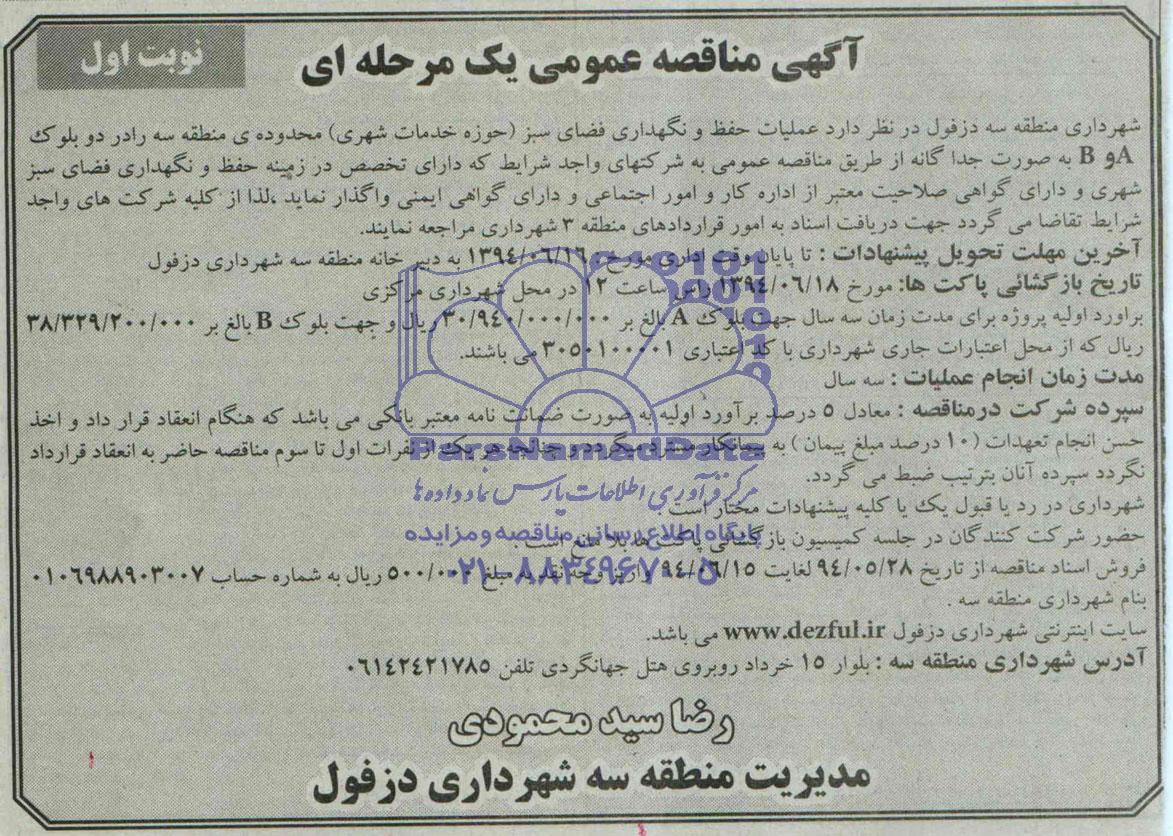 نوبت اول
آگهی مناقصه عمومی یک مرحله ای
شهرداری منطقه سه دزفول در نظر دارد عملیات حفظ و نگهداری فضای سبز (حوزه خدمات شهری) محدوده ی منطقه سه رادر دو بلوک
Aو B به صورت جدا گانه از طریق مناقصه عمومی به شرکتهای واجد شرایط که دارای تخصص در زمینه حفظ و نگهداری فضای سبز
شهری و دارای گواهی صلاحیت معتبر از اداره کار و امور اجتماعی و دارای گواهی ایمنی واگذار نماید ،لذا از کلیه شرکت های واجد
شرایط تقاضا می گردد جهت دریافت اسناد به امور قراردادهای منطقه ۳ شهرداری مراجعه نمایند.
آخرین مهلت تحویل پیشنهادات : تا پایان وقت اداری مورخ ۱۳۹۴/۰۶/۱۶ به دبیر خانه منطقه سه شهرداری دزفول
تاریخ بازگشائی پاکت ها: مورخ ۱۳۹۴/۰۶/۱۸ راس ساعت ۱۲ در محل شهرداری مرکزی
براورد اولیه پروژه برای مدت زمان سه سال جهت بلوک A بالغ بر ۳۰/۹۴۰/۰۰۰/۰۰۰ ریال و جهت بلوک B بالغ بر ۳۸/۳۲۹/۲۰۰/۰۰۰
ریال که از محل اعتبارات جاری شهرداری با کد اعتباری ۳۰۵۰۱۰۰۰۰۱ می باشند.
مدت زمان انجام عملیات : سه سال
سپرده شرکت درمناقصه : معادل ۵ درصد برآورد اولیه به صورت ضمانت نامه معتبر بانکی می باشد که هنگام انعقاد قرار داد و اخذ
حسن انجام تعهدات (۱۰ درصد مبلغ پیمان ) به پیمانکار مسترد میگردد و چنانچه هر یک از نفرات اول تا سوم مناقصه حاضر به انعقاد قرارداد
نگردد سپرده آنان بترتیب ضبط می گردد.
شهرداری در رد یا قبول یک یا کلیه پیشنهادات مختار است
حضور شرکت کنندگان در جلسه کمیسیون بازگشائی پاکت ها بلا مانع است .
فروش اسناد مناقصه از تاریخ ۹۴/۰۵/۲۸ لغایت ۹۴/۰۶/۱۵ واریز وجه نقد به مبلغ ۵۰۰/۰۰۰ ریال به شماره حساب ۰۱۰۶۹۸۸۹۰۳۰۰۷
بنام شهرداری منطقه سه .
سایت اینترنتی شهرداری دزفول www.dezful.ir می باشد.
آدرس شهرداری منطقه سه : بلوار ۱۵ خرداد روبروی هتل جهانگردی تلفن ۰۶۱۴۲۴۲۱۷۸۵
رضا سید محمودی
مدیریت منطقه سه شهرداری دزفول
ParsNamadData
مرکز فرآوری اطلاعات پارس نماد داده ها
پایگاه اطلاع رسانی مناقصه و مزایده
۰۲۱-۸۸۳۴۹۶۷۰-۵